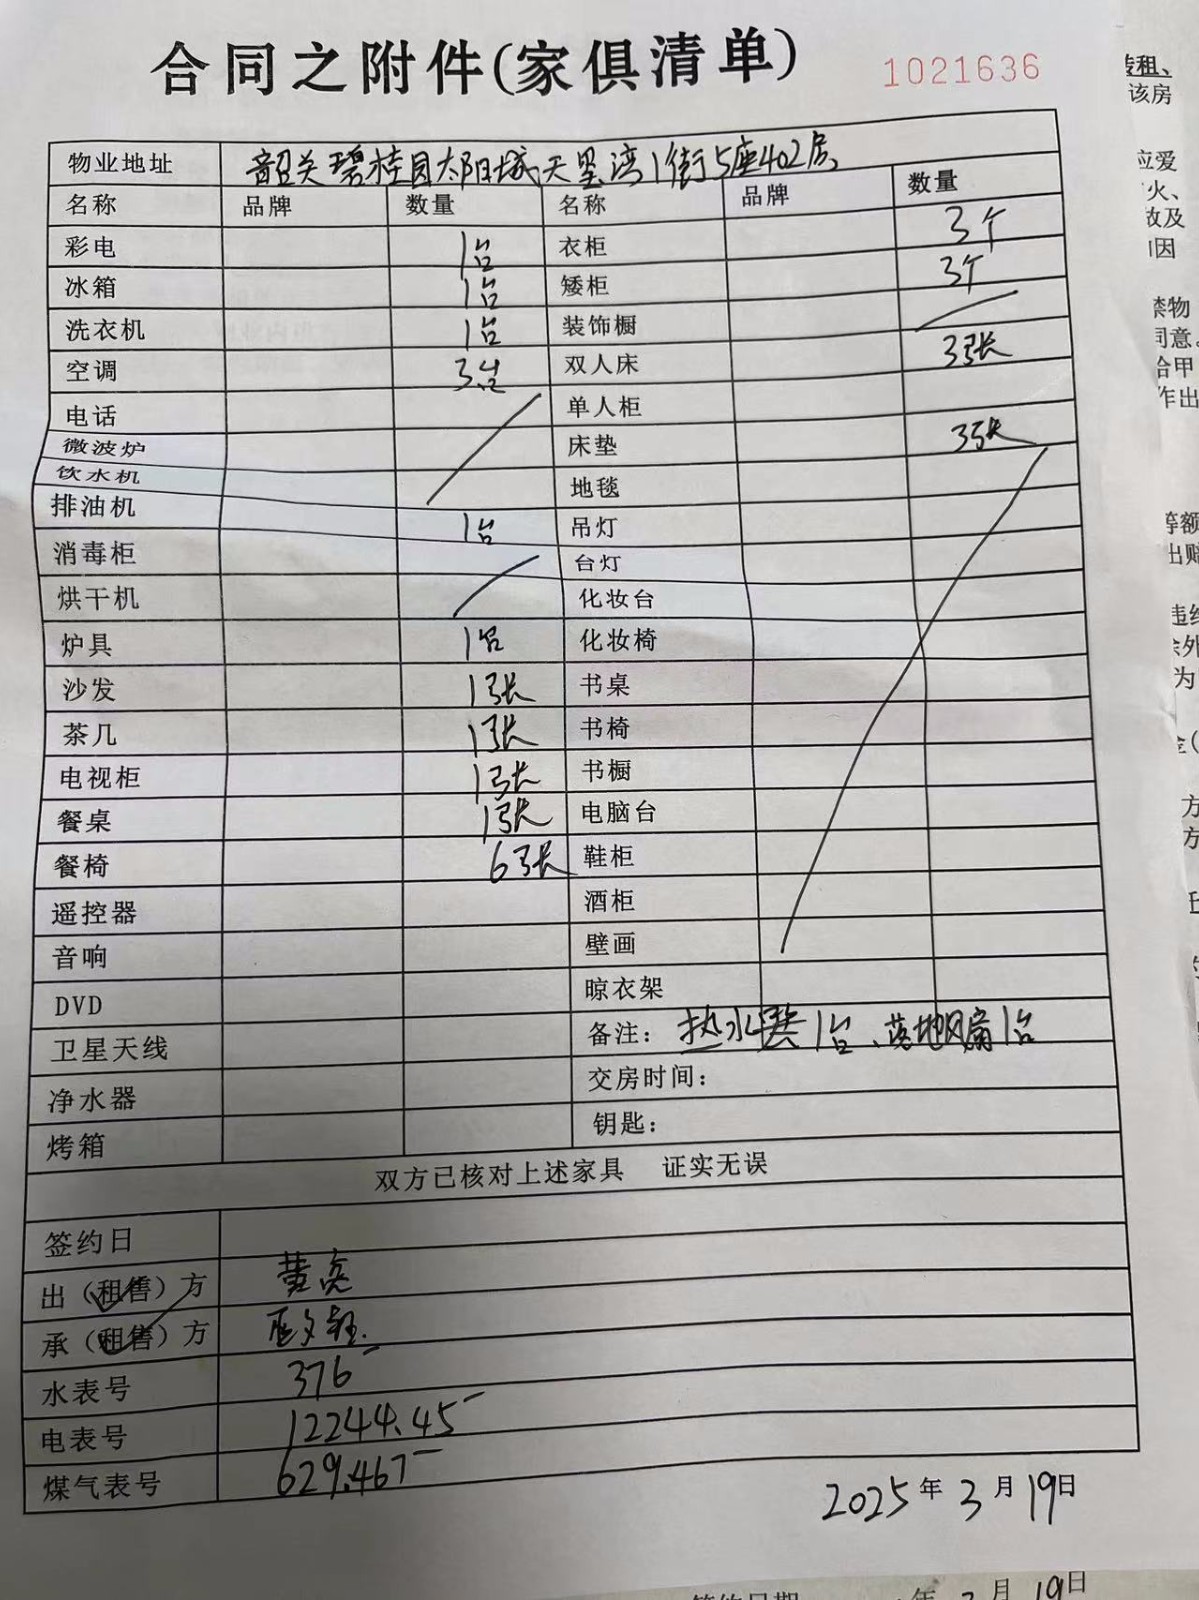 合同之附件(家俱清单) 1021636
物业地址 韶关碧桂园太阳城天玺湾1街5座402房
名称 品牌 数量 名称 品牌 数量
彩电 1台 衣柜 3个
冰箱 1台 矮柜 3个
洗衣机 1台 装饰橱
空调 3台 双人床 3张
电话 单人柜
微波炉 床垫 3张
饮水机 地毯
排油机 1台 吊灯
消毒柜 台灯
烘干机 化妆台
炉具 1台 化妆椅
沙发 1张 书桌
茶几 1张 书椅
电视柜 1张 书橱
餐桌 1张 电脑台
餐椅 6张 鞋柜
遥控器 酒柜
音响 壁画
DVD 晾衣架
卫星天线 备注：热水器1台、落地风扇1台
净水器 交房时间：
烤箱 钥匙：
双方已核对上述家具 证实无误
签约日
出（租售）方 黄亮
承（租售）方
水表号 376
电表号 12244.45
煤气表号 629.467
2025年3月19日
转租、
该房
应爱
火、
故及
因
禁物
同意。
给甲
作出
等额
出赔
违约
余外
为
方
方
年3月19日